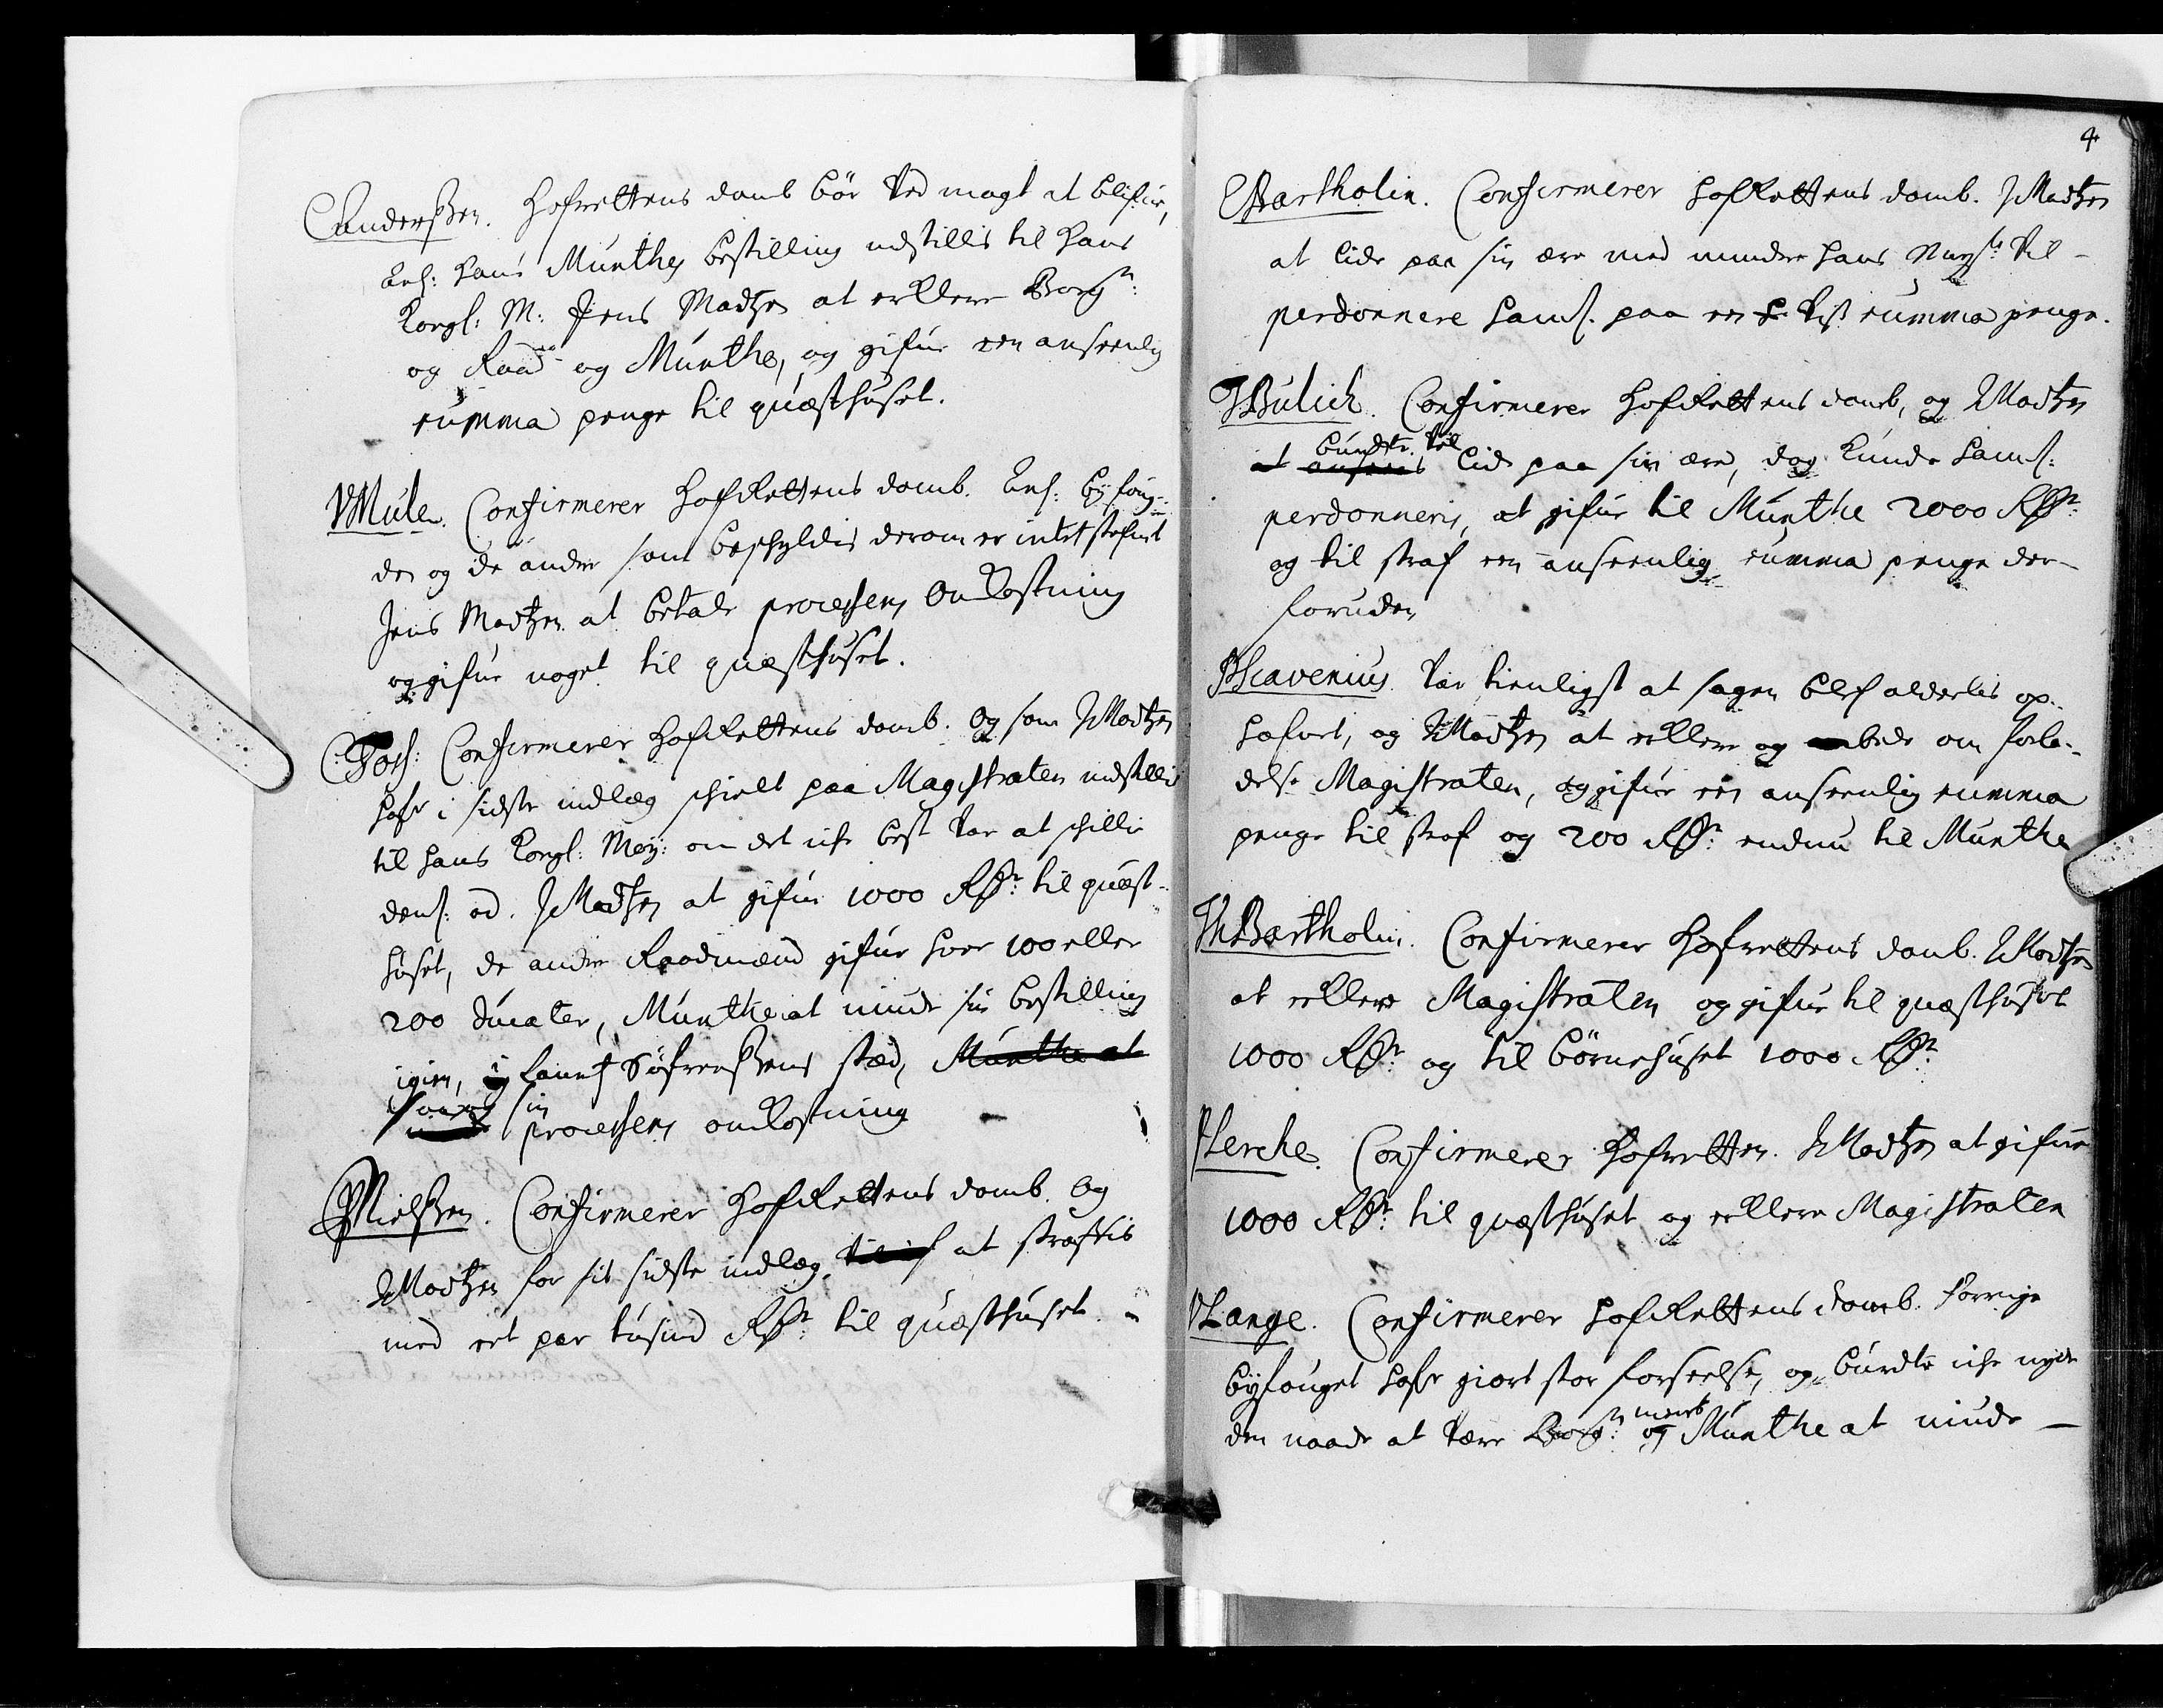 CAnderssen. Hofrettens domb bör ved magt at blifue,
Anl: Hans Munthes bestilling indstillis til Hans
Kongl: M: Jens Madtzen at erklere Borg^m:
og Raad og Munthe, og gifue een anseenlig
summa penge til quæsthuset.
VMule. Confirmerer HofRettens domb. Anl: byfoug-
den og de andre som beschyldis derom er intet stefnet
Jens Madtzen at betale processens Omkostning
og gifue noget til quæsthuset.
CTosf: Confirmerer HofRettens domb. Og som JMadtzen
hafr i sidste indlæg schielt paa Magistraten indstillis
til hans Kongl: May: om det icke best var at schille
dem ad. JMadtzen at gifue 1000 Rdr: til quæst-
huset, de andre Raadmænd gifue hver 100 eller
200 ducater, Munthe at niude sin bestilling
igien, i Lauritz Söfrenssens stæd, Munthe at
sin
processens omkostning
PNielssen. Confirmerer HofRettens domb. Og
JMadtzen for sit sidste indlæg at straffis
med eet par tusind Rdr: til quæsthuset.
4
CBartholin. Confirmerer HofRettens domb. JMadtzen
at lide paa sin ære med mindre Hans Mayst: vil
perdonnere hamb. paa en vis summa penge.
JBulich. Confirmerer HofRettens domb, og JMadtzen
burdte vel
at ansees lide paa sin ære, dog kunde hamb:
perdonneris, at gifue til Munthe 2000 Rdr:
og til straf een anseenlig summa penge der-
foruden
PScavenius. Var tienligst at sagen blef alderlis op-
hæfvet, og JMadtzen at erklere og bede om forla-
delse Magistraten, og gifue een anseenlig summa
penge til straf og 200 Rdr: endnu til Munthe
ThBartholin. Confirmerer Hofrettens domb. JMadtzen
at erklere Magistraten og gifue til quæsthuset
1000 Rdr: og til börnehuset 1000 Rdr:
VLerche. Confirmerer Hofretten. JMadtzen at gifue
1000 Rdr: til quæsthuset og erklere Magistraten
VLange. Confirmerer HofRettens domb. Forrige
byfouget hafr giort stor forseelse, og burdte icke nyde
den naade at være Borg^m: og Munthe at niude